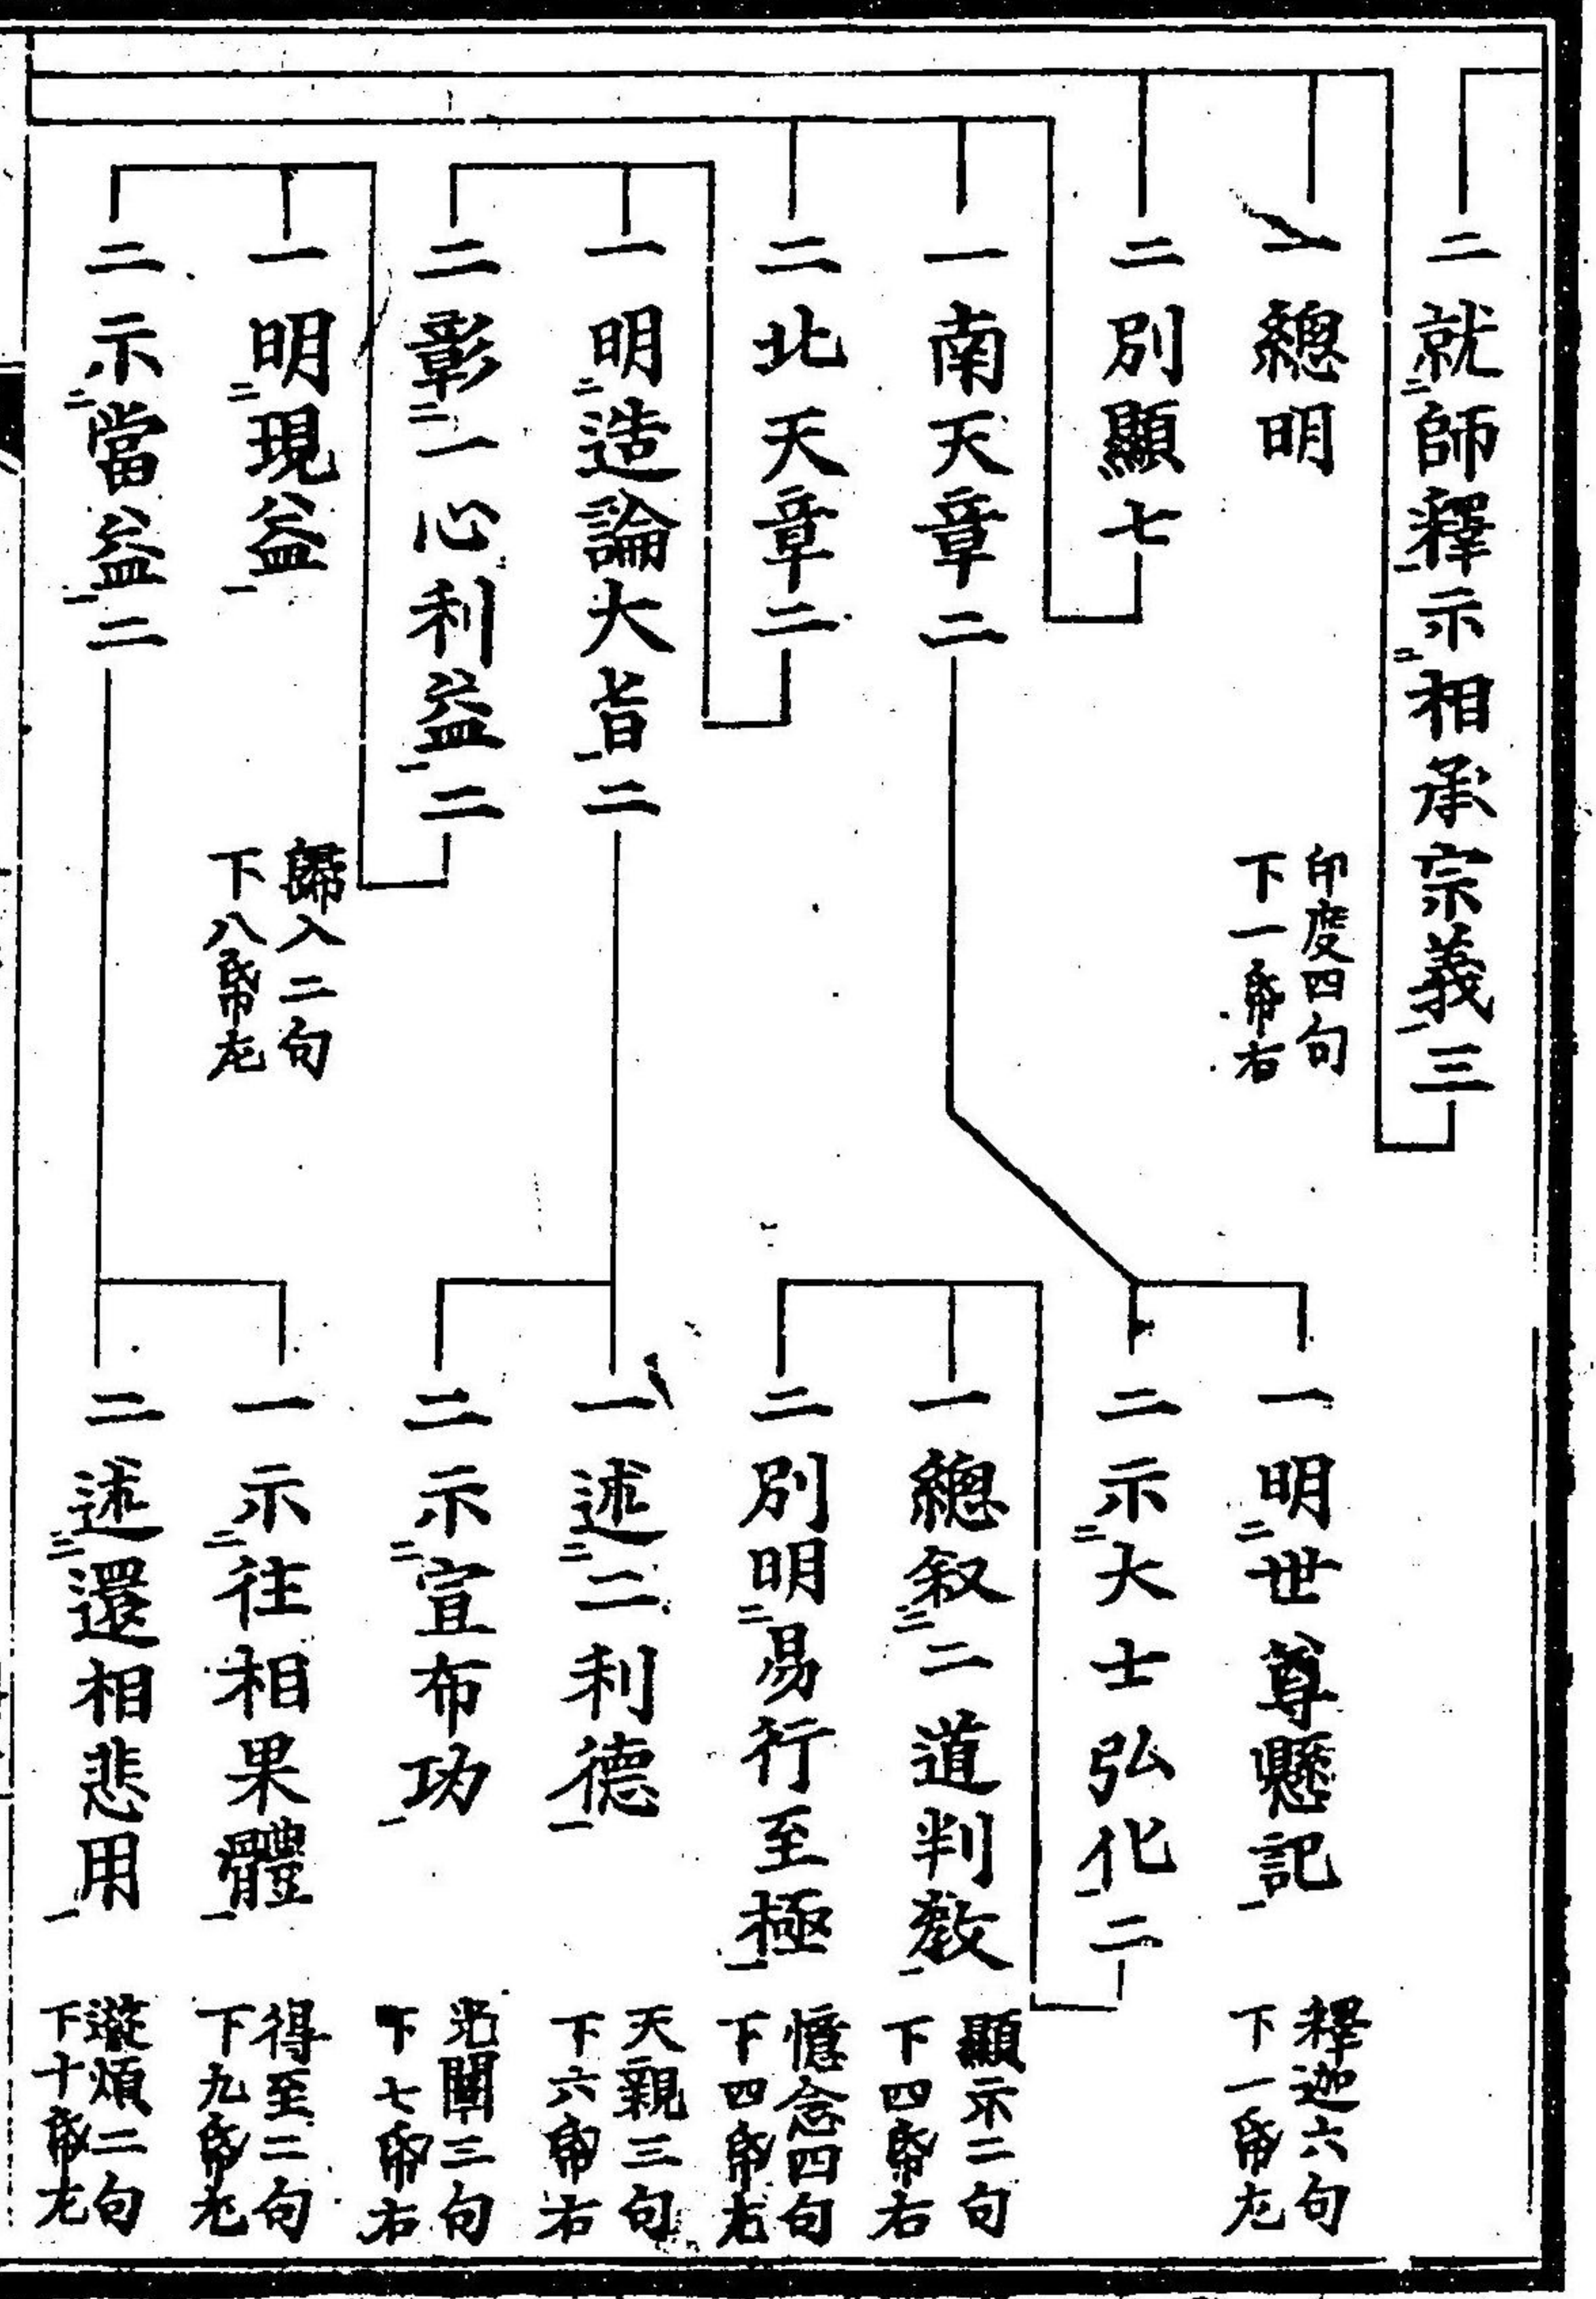 二就師釋示相承宗義三
一總明
印度四句
下一帋右
二別顯七
一南天章二
二北天章二
一明造論大旨二
二彰一心利益二
一明現益
歸入二句
下八帋左
二示當益二
一明世尊懸記
釋迦六句
下一帋左
二示大士弘化二
一總叙二道判教
顯示二句
下四帋右
二別明易行至極
憶念四句
下四帋左
一述二利德
天親三句
下六帋右
二示宣布功
光闡三句
下七帋右
一示往相果體
得至二句
下九帋左
二述還相悲用
遊煩二句
下十帋左